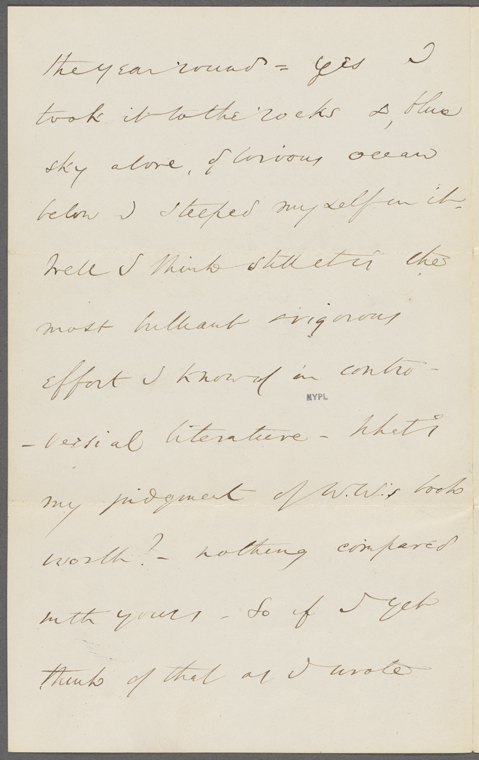 the year round = yes I
took it to the rocks & blue
sky alove, glorious ocean
below I steeped myself in it.
Well I think still it is the
most brilliant & vigorous
effort I know of in contro-
NYPL
-versial literature - What is
my judgment of W.W.'s book
worth? - nothing compared
with yours - So if I yet
think of that as I wrote